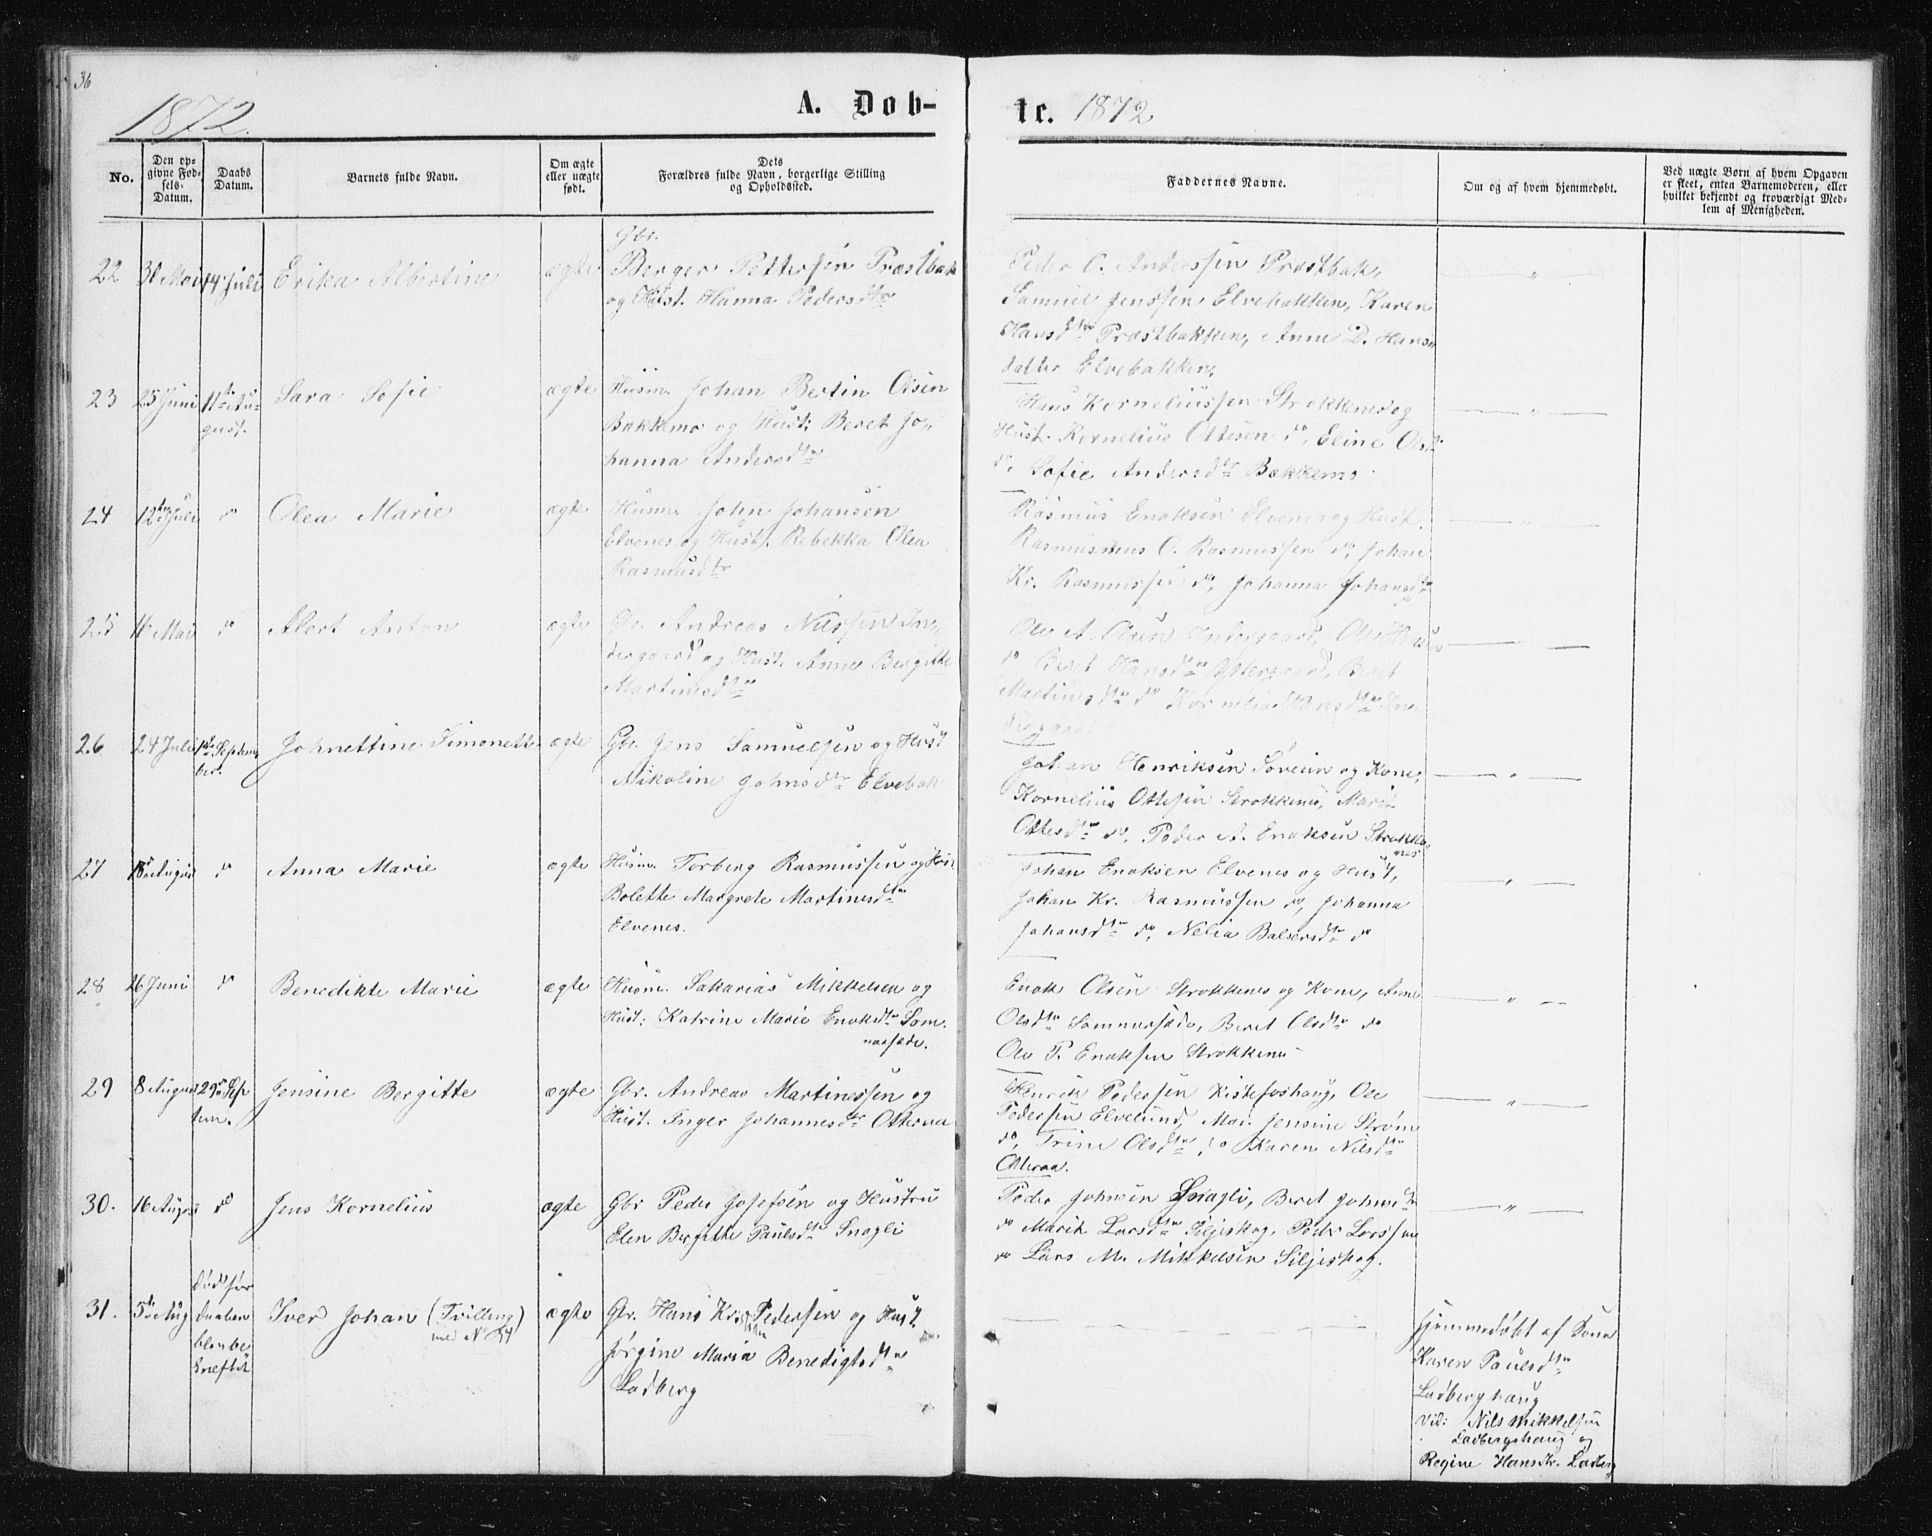 36
1872.
A. Døb-
te. 1872
No.
Den op-
givne Fød-
sels-
Datum.
Daabs
Datum.
Barnets fulde Navn.
Om ægte
eller uægte
født.
Dets
Forældres fulde Navn, borgerlige Stilling
og Opholdssted.
Faddernes Navne.
Om og af hvem hjemmedøbt.
Ved uægte Børn af hvem Opgaven
er skeet, enten Barnemoderen, eller
hvilket bekjendt og troværdigt Med-
lem af Menigheden.
22 Mai 14 Juli Erika Albertine ægte
Gbr.
Berger Pettersen Præstbak
og Hust. Hanna Pedersdtr
Peder O. Anderssen Præstbak,
Samuel Jenssen Elvebakken, Karen
Hansdtr Præstbakken, Anne D. Hans
datter Elvebakken
23 25 Juni 11te Au-
gust. Sara Sofie ægte
Husm. Johan Bertin Olsen
Bakkemo og Hust: Beret Jo-
hanna Andersdtr
Hans Korneliussen Strokkenes og
Hust. Kornelius Ottesen do, Eline Olsdtr
do, Sofie Andersdtr Bakkemo
24 12te Juli do Olea Marie ægte
Husm. John Johansen
Elvenes og Hust. Rebekka Olea
Rasmusdtr
Rasmus Enoksen Elvenes og Hust.
Rasmusmus O. Rasmussen do, Johan
Kr. Rasmussen do, Johanna Johansdtr
do
25 16 Mai do Albert Anton ægte
Gbr. Andreas Nilssen In-
dergaard og Hust. Anne Bergitte
Martinesdtr
Ole A. Olsen Indergaard, Ole Hansen
do Beret Hansdtr Indergaard, Beret
Martinesdtr do Kornelia Hansdtr In-
dergaard
26 24 Juli 1ste Septem-
ber. Johnettine Simonette ægte
Gbr. Jens Samuelsen og Hust
Nikoline Johnsdtr Elvebak
Johan Henriksen Søreim og Kone,
Kornelius Ottesen Strokkenes, Marie
Ottesdtr do, Peder A. Enoksen Strokke-
nes
27 August do Anna Marie ægte
Husm. Torberg Rasmussen og Hust
Bolette Margrete Martinesdtr
Elvenes.
Johan Enoksen Elvenes og Hust,
Johan Kr. Rasmussen do, Johanna
Johansdtr do, Nelia Balsersdtr do
28 26 Juni do Benedikte Marie ægte
Husm. Sakarias Mikkelsen og
Hust: Katrine Marie Enoksdtr Som-
mersæde.
Enok Olsen Strokkenes og Kone, Anne
Olsdtr Sommersæde, Beret Olsdtr do
Ole P. Enoksen Strokkenes
29 8 August 29de Sep
tem. Jensine Bergitte ægte
Gbr. Andreas Martinessen og
Hust. Inger Johannesdtr Otteraa
Henrik Pedersen Kistefoshaug, Ole
Pedersen Elvelund, Mad. Jensine Strøm
do, Trine Olsdtr do Karen Nilsdtr
Otteraa.
30. 16 August do Jens Kornelius ægte
Gbr Peder Josefsen og Hustru
Elen Bergitte Paulsdtr Snagli
Peder Johnsen Snagli, Beret Johnsdtr
do Marit Larsdtr Siljeskog, Peder Larssen
do Lars M. Mikkelsen Siljeskog.
31. 5te Aug Død før
Daaben
blev be-
kræftet Iver Johan (Tvilling)
med No ægte
Gbr. Hans Kr. Pedersen og Hust.
Jørgine Maria Benedigtsdtr
Ladberg
Hjemmedøbt af Kona
Karen Paulsdtr
Ladberghaug
Vid: Nils Mikkelsen
Ladbergshaug og
Regine Hans Kr. Ladberg